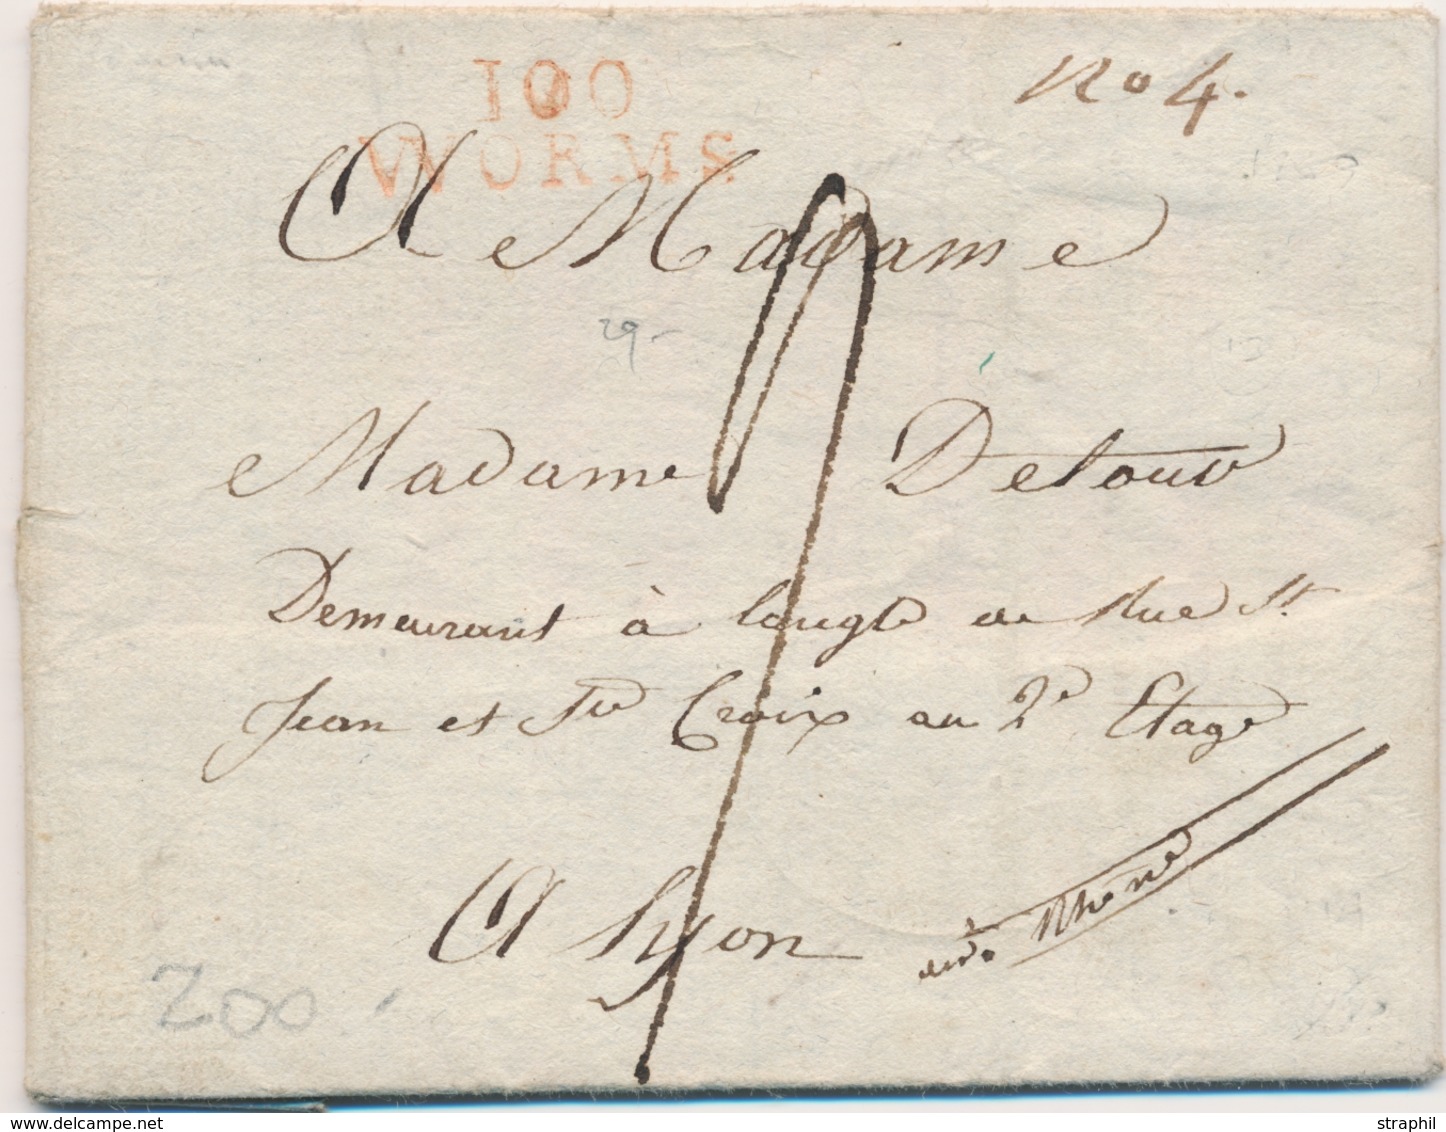 100
WORMS.
No 4.
A Madame
29-
Madame Detour
Demeurant à langle de Rue St.
Jean et Ste Croix au 2e Etage
A Lyon
Rhone
200
www.delcampe.net
straphil